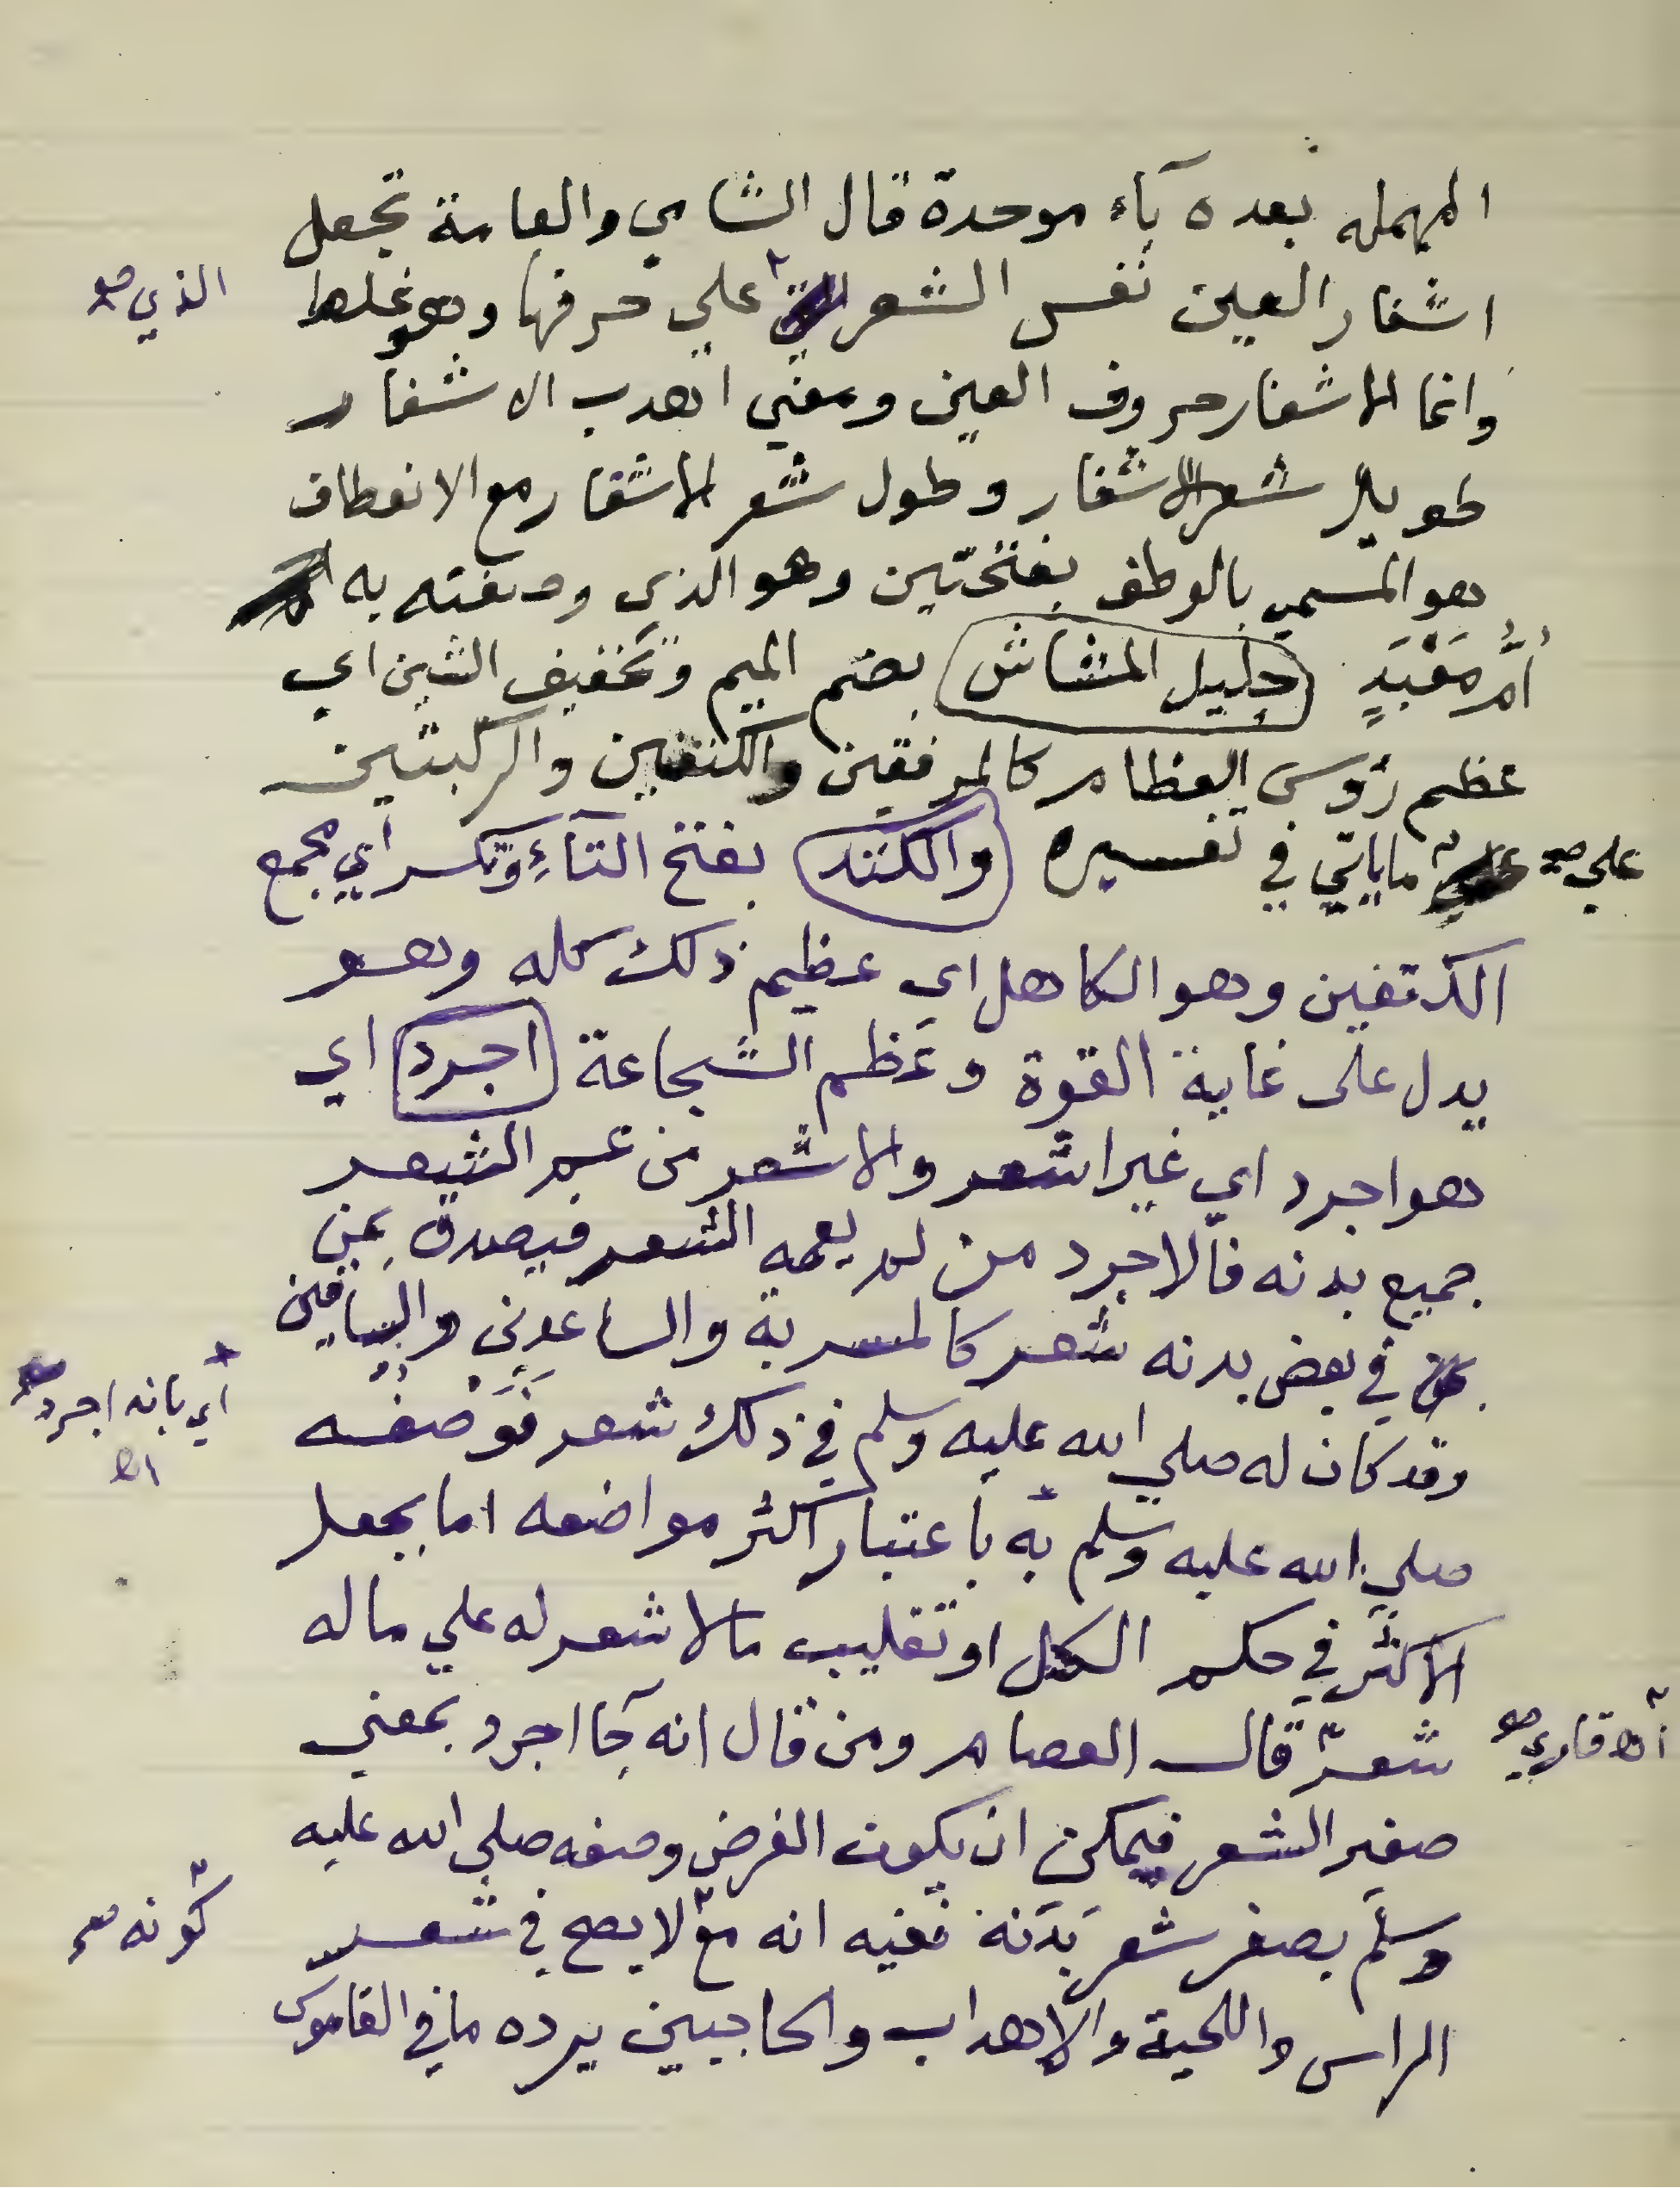 المهمله بعده بآء موحدة قال الشامي والعامة تجعل
اشفار العين نفس الشعر علي حرفها وهو غلط
الذي صح
وانما الاشفار حروف العين ومعني اهدب الاشفار
طويل شعر الاشفار وطول شعر الاشفار مع الانعطاف
هو المسمي بالوطف بفتحتين وهو الذي وصفته به
أُمُّ مَعْبَدٍ جليل المشاش بضم الميم وتخفيف الشين اي
عظم رؤوس العظام كالمرفقين والكتفين والركبتين
علي صح ما ياتي في تفسيره والكتد بفتح التآءِ وتكسر اي مجمع
الكتفين وهو الكاهل اي عظيم ذلك كله وهو
يدل على غاية القوة وعَظم الشجاعة اجرد اي
هو اجرد اي غير اشعر والاشعر من عم الشعر
جميع بدنه فالاجرد من لم يعمه الشعر فيصدق بمن
في بعض بدنه شعر كالمسربة والساعدين والساقين
وقد كان له صلي الله عليه وسلم في ذلك شعر فَوَصْفُه
اي بانه اجرد
اه
صلي الله عليه وسلم به باعتبار اكثر مواضعه اما بجعل
الاكثر في حكم الكل او تغليب ما لا شعر له علي ما له
شعر قال العصام ومن قال انه جآ اجرد بمعني
اه قاري صح
صغير الشعر فيمكن ان يكون الغرض وصفه صلي الله عليه
وسلم بصغر شعر بَدَنه ففيه انه مع لا يصح في شعر
كونه صح
الراس واللحية والاهداب والحاجبين يرده ما في القاموس